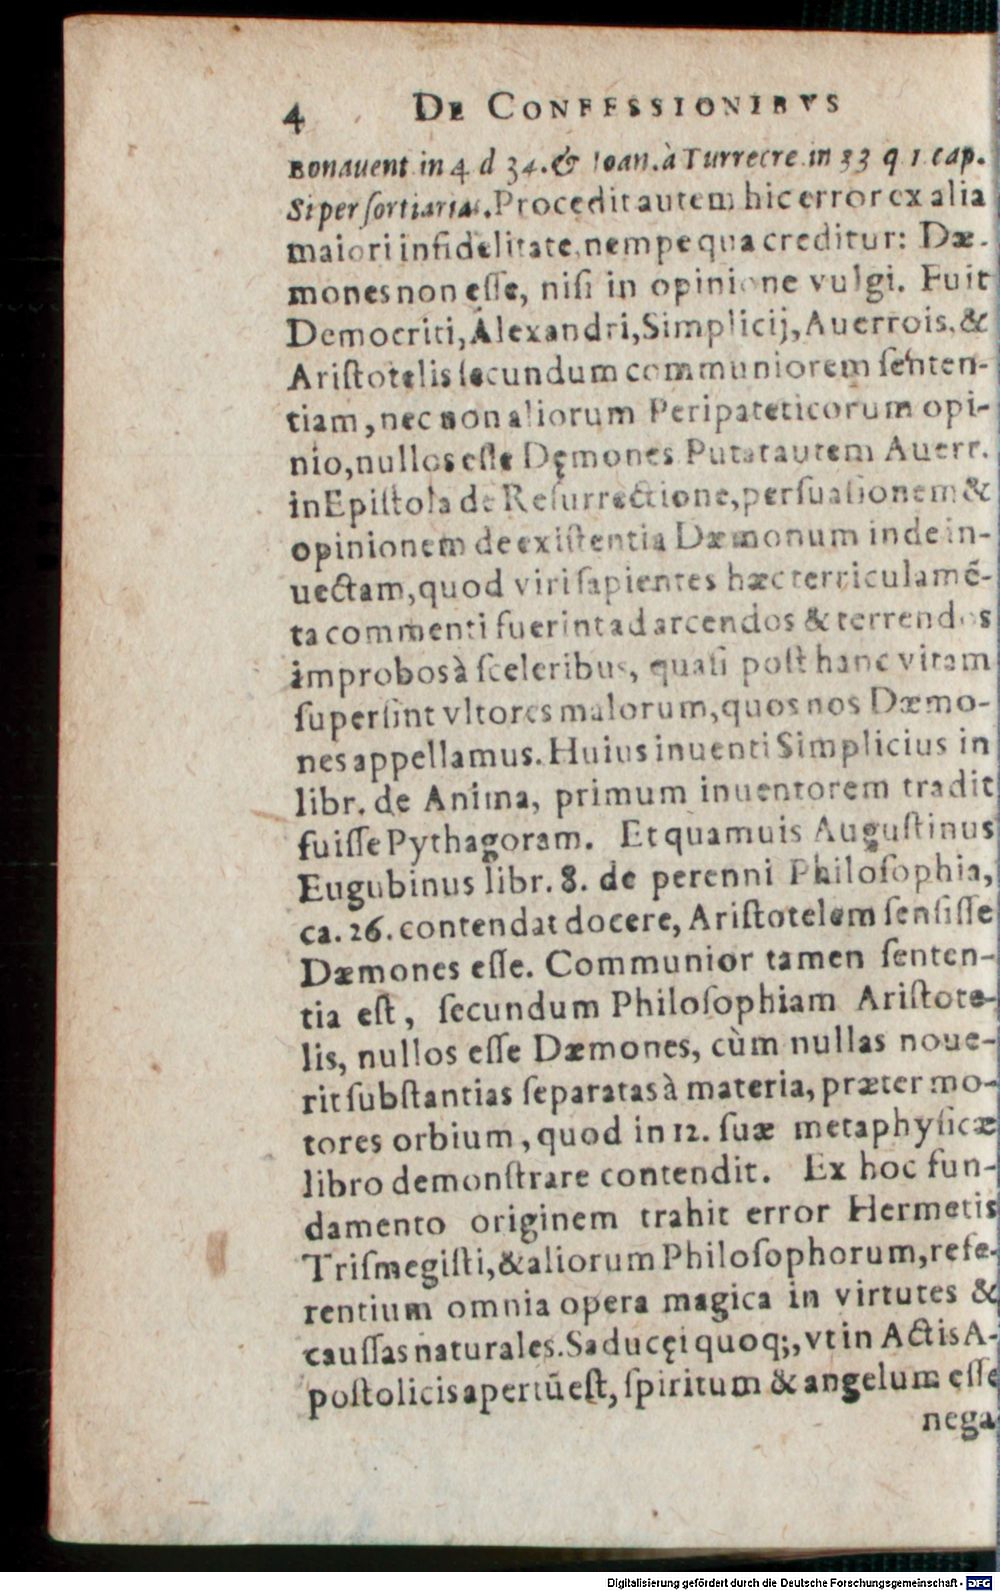 4 DE CONFESSIONIBVS
Bonauent in 4 d 34. & Ioan. à Turrecre in 33 q 1 cap.
Si per ſortiarias. Procedit autem hic error ex alia
maiori infidelitate, nempe qua creditur: Dæ-
mones non eſſe, niſi in opinione vulgi. Fuit
Democriti, Alexandri, Simplicij, Auerrois, &
Ariſtotelis ſecundum communiorem ſenten-
tiam, nec non aliorum Peripateticorum opi-
nio, nullos eſſe Dęmones Putat autem Auerr.
in Epiſtola de Reſurrectione, perſuaſionem &
opinionem de exiſtentia Dæmonum inde in-
uectam, quod viri ſapientes hæc terriculamẽ-
ta commenti fuerint ad arcendos & terrendos
improbos à ſceleribus, quaſi poſt hanc vitam
ſuperſint vltores malorum, quos nos Dæmo-
nes appellamus. Huius inuenti Simplicius in
libr. de Anima, primum inuentorem tradit
fuiſſe Pythagoram. Et quamuis Auguſtinus
Eugubinus libr. 8. de perenni Philoſophia,
ca. 26. contendat docere, Ariſtotelem ſenſiſſe
Dæmones eſſe. Communior tamen ſenten-
tia eſt, ſecundum Philoſophiam Ariſtote-
lis, nullos eſſe Dæmones, cùm nullas noue-
rit ſubſtantias ſeparatas à materia, præter mo-
tores orbium, quod in 12. ſuæ metaphyſicæ
libro demonſtrare contendit. Ex hoc fun-
damento originem trahit error Hermetis
Triſmegiſti, & aliorum Philoſophorum, refe-
rentium omnia opera magica in virtutes &
cauſſas naturales. Saducęi quoq;, vt in Actis A-
poſtolicis apertũ eſt, ſpiritum & angelum eſſe
nega
Digitalisierung gefördert durch die Deutsche Forschungsgemeinschaft - DFG